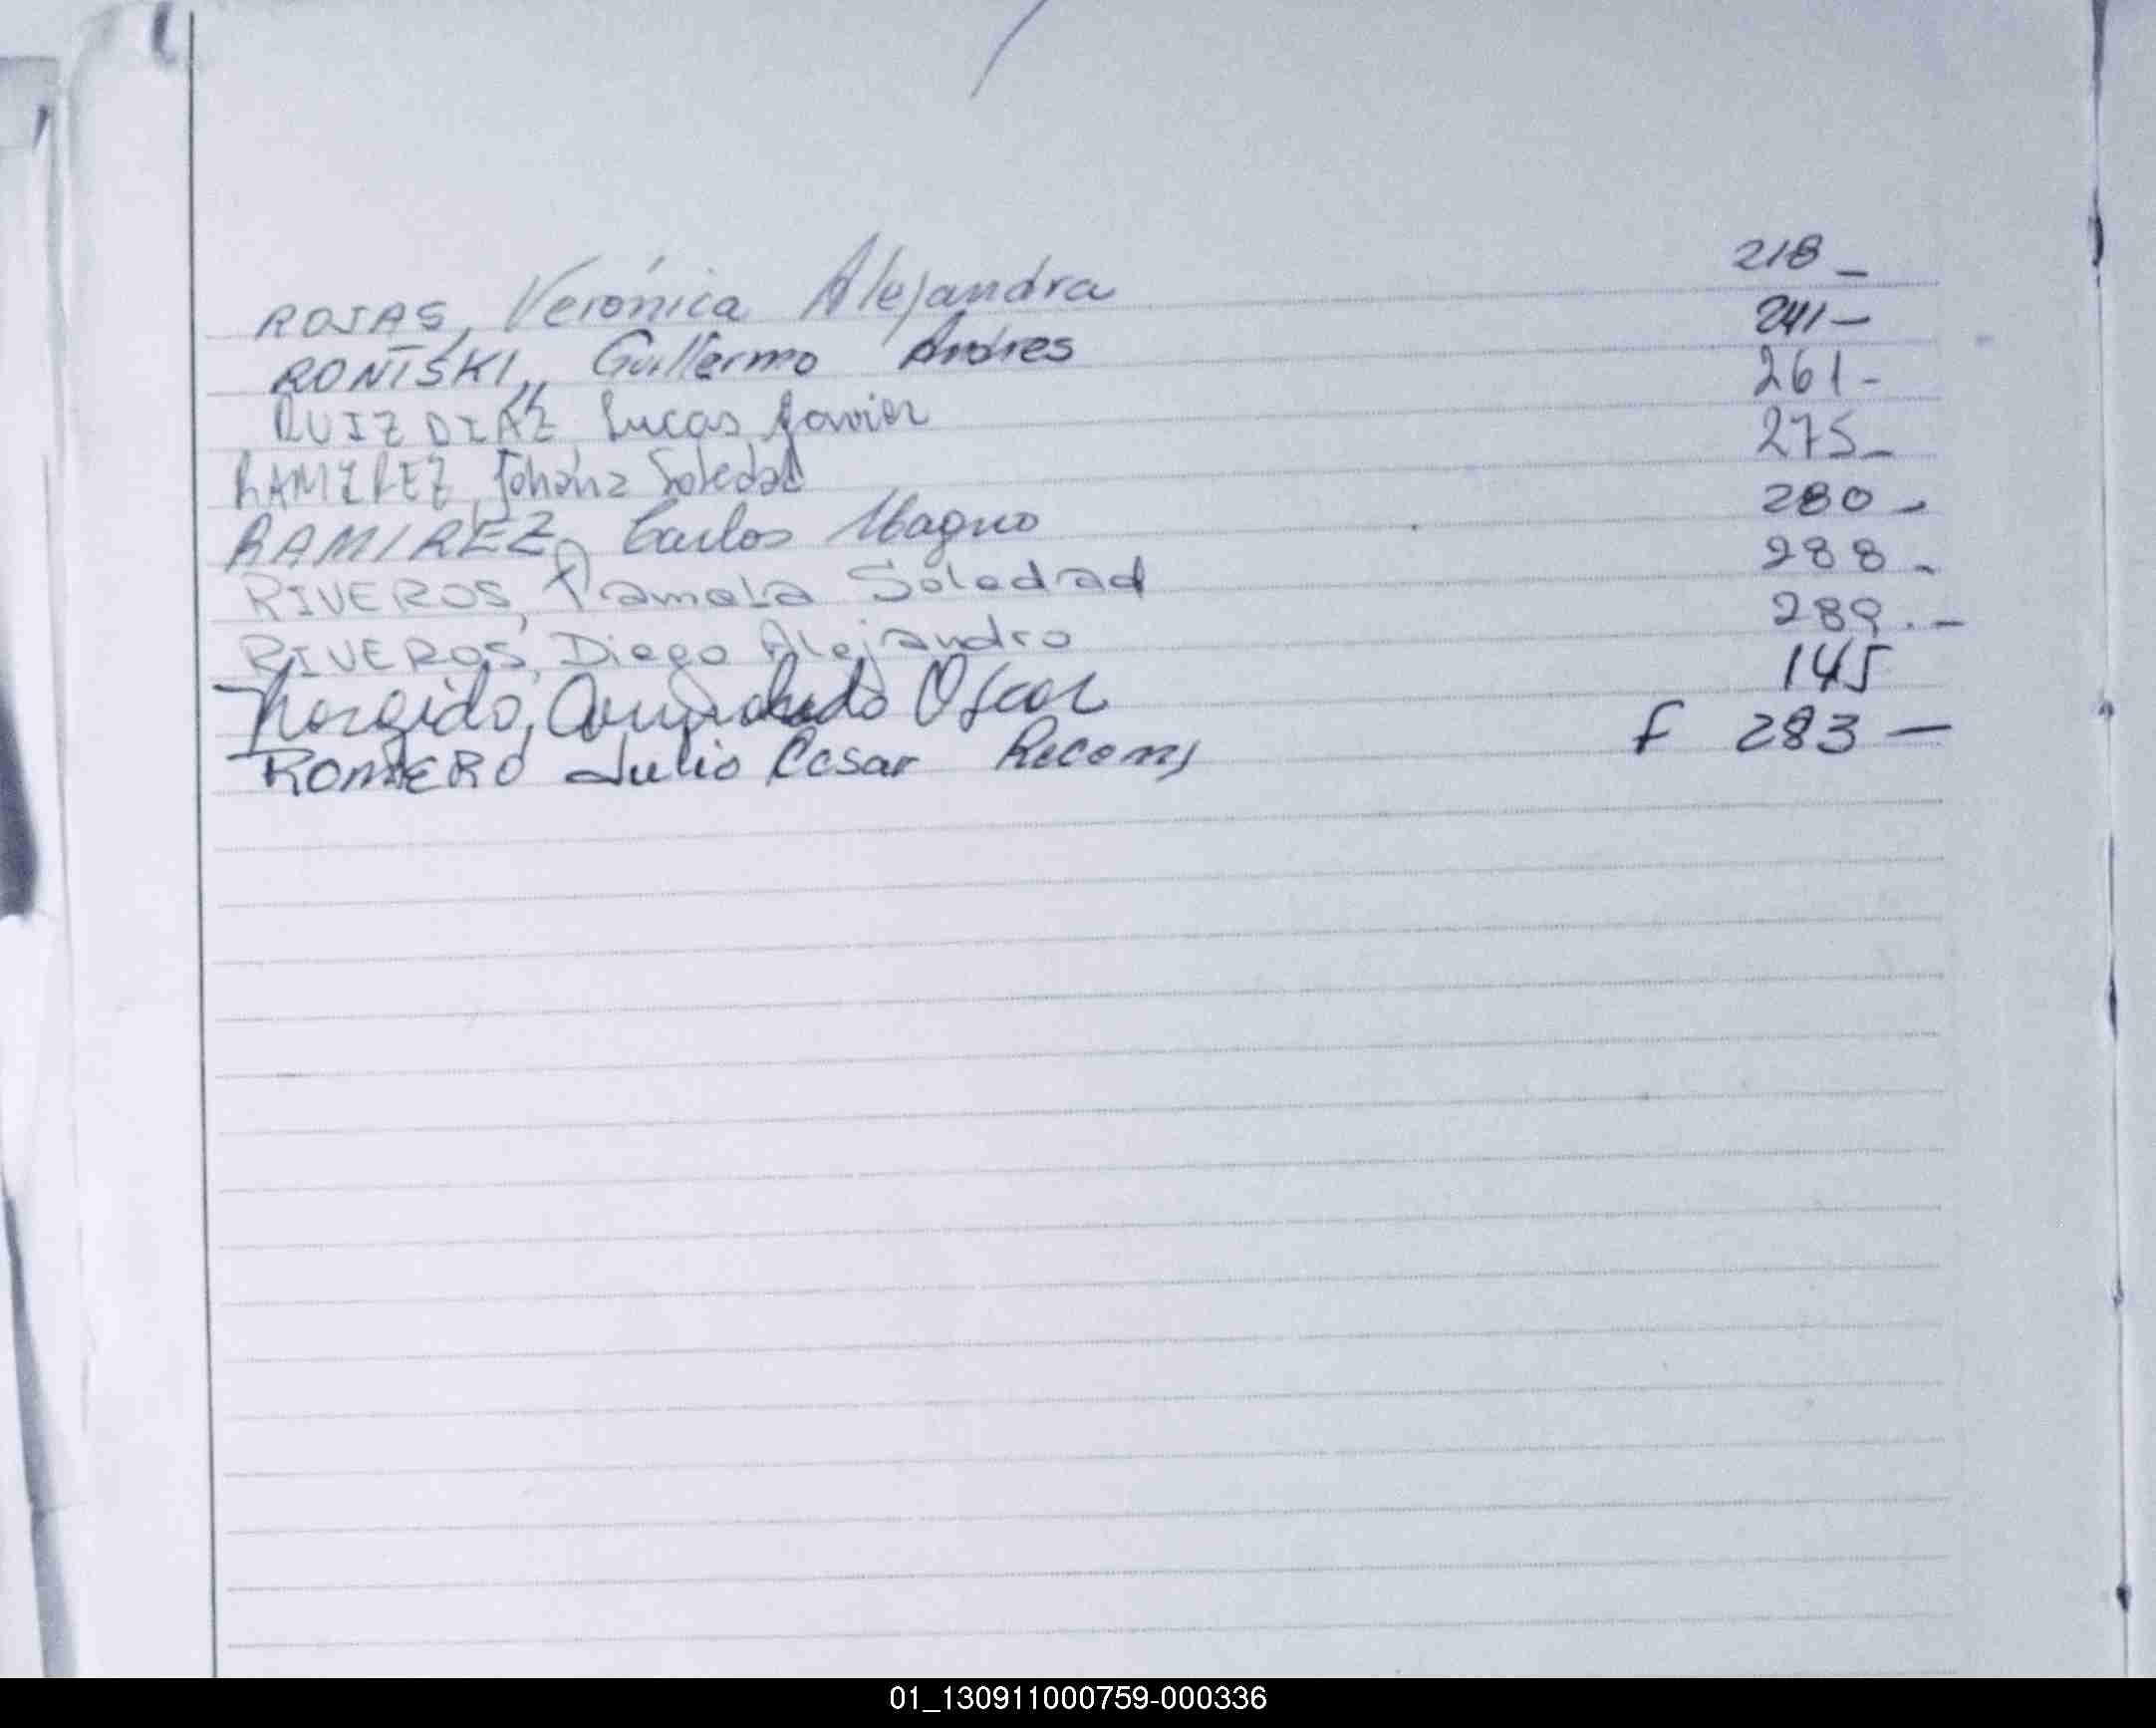 ROJAS, Verónica Alejandra 218 _
RONISKI, Guillermo Andres 241 —
RUIZ DIAZ, Lucas Javier 261 -
RAMIREZ, Johana Soledad 275 _
RAMIREZ, Carlos Magno 280 -
RIVEROS, Pamela Soledad 288 -
RIVEROS, Diego Alejandro 289. -
Oscar 145
ROMERO Julio Cesar Recony F 283 —
01_130911000759-000336